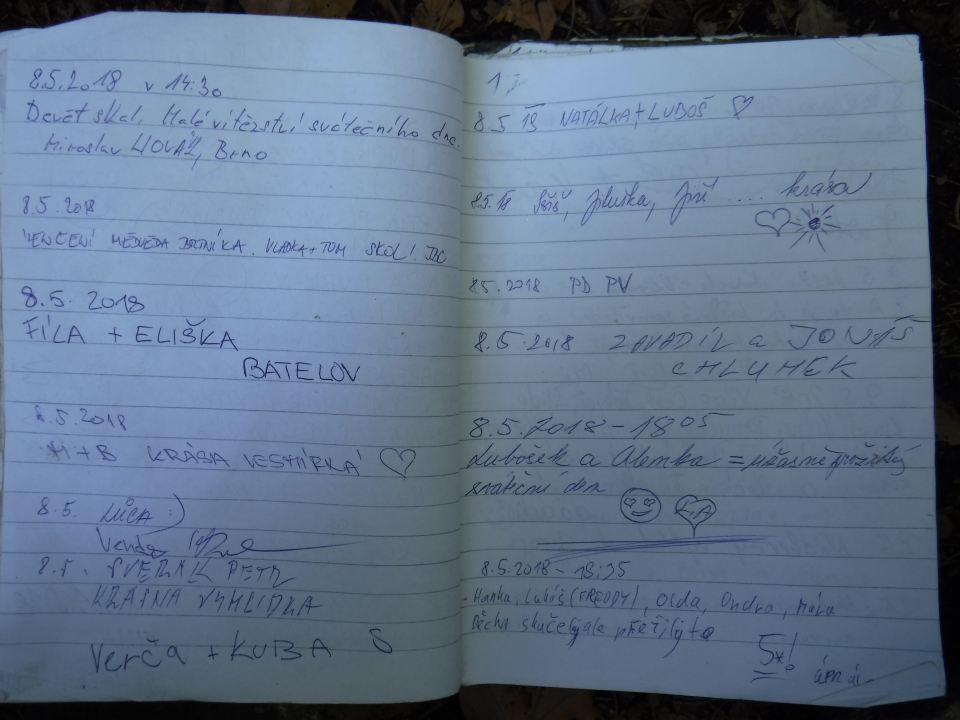 8.5.2018 v 14:30
Devět skal, Malé vítězství svátečního dne.
Miroslav, Brno
8.5.2018
MEDVĚDA VLAĎKA + TOM SKOL!
8.5. 2018
FÍLA + ELIŠKA
BATELOV
8.5.2018
H+B KRÁSA VESMÍRNÁ
8.5. LŮCA :)
Venda
8.5. SVĚRÁK PETR
KRÁSNÁ VYHLÍDKA
Verča + KUBA
1
8.5 18 NATÁLKA + LUBOŠ
8.5.18 pluška, .... krása
8.5.2018 PD PV
8.5.2018 ZAVADIL a JONÁŠ
CHLUMEK
8.5.2018 - 18 05
Lubošek a Alenka = úžasně prožitý
sváteční den
L A
8.5.2018 - 18:35
Hanka, Luboš (FREDDY), Olda, Ondra, Mára
5*!